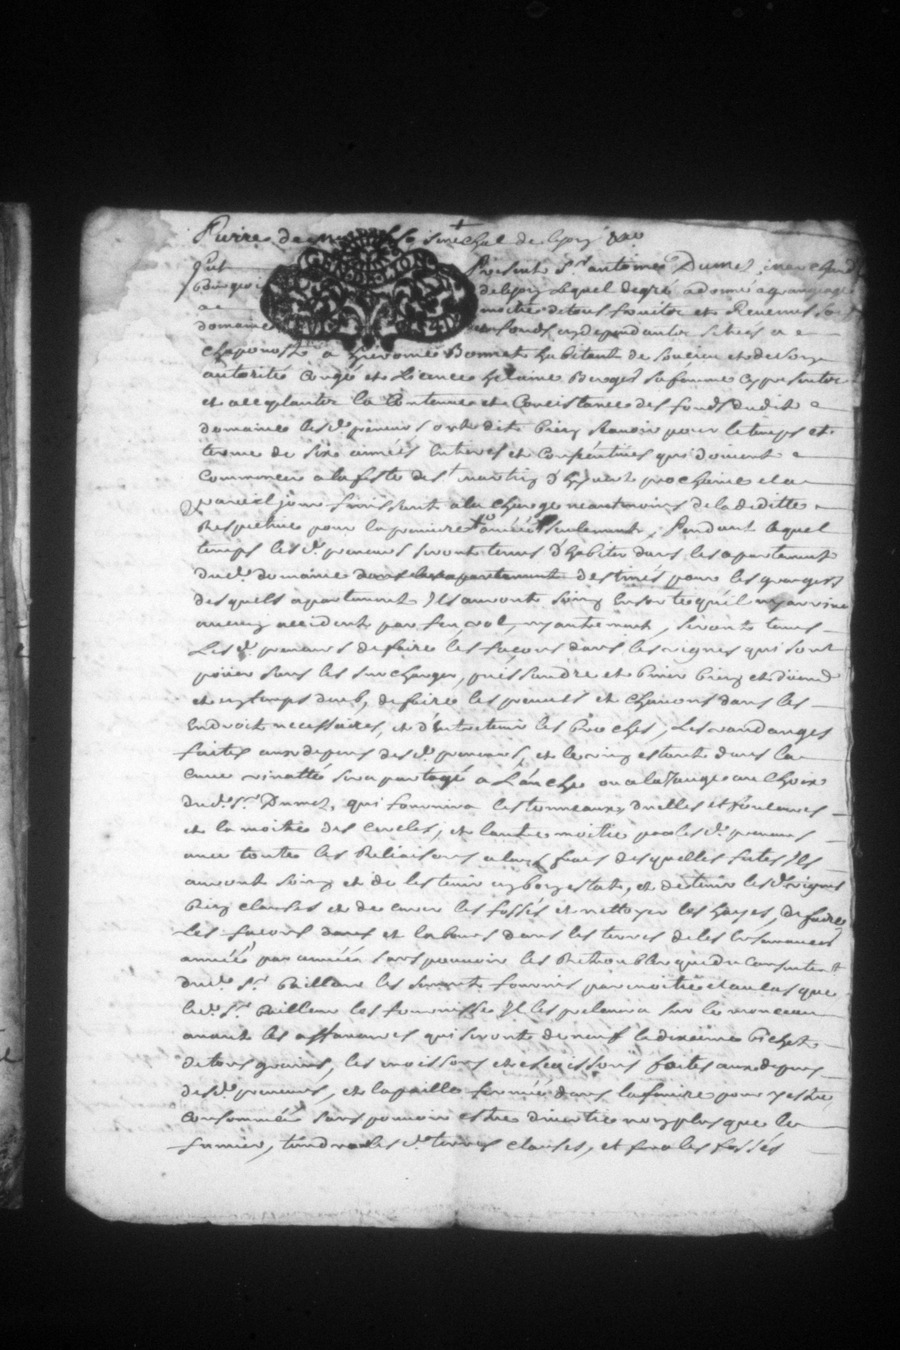 Pierre de senechal de lyon
fut present Sr antoine Dumet marchand
Bourgeois de lyon lequel de gré a donné a grangeage
a moitié de tous fruitz et Revenus son
domaine fonds en dependantz scitués a
chaponost a hierome Bonnet habitant de soucieu et de son
autorité congé et Licence helaine Berger sa femme cy presentz
et acceptantz la Contenue et Concistance des fonds dudit
domaine lesd. preneurs ont dit bien scavoir pour le temps et
terme de six années entieres et consecutives qui doivent
commencer a la feste de st martin d'hyvert prochaine et a
pareil jour finissant a la charge neantmoins de la deditte
Respective pour la premiere année seulement, Pendant lequel
temps lesd. preneurs seront tenus d'habiter dans les apartement
dud. domaine destinés pour les grangers
desquels apartement Ils auront soing en sorte qu'il n'y arrive
aucun accident par feu, vol, ny autrement, seront tenus
Lesd. preneurs de faire les façons dans les vignes qui sont
sans les surcharger, puis fendre et biner bien et duement
et en temps deub, de faire les prouets et chavons dans les
endroit necessaires, et d'entretenir les broches, Les vandanges
faites aux depens desd. preneurs, et le vin estant dans la
cuve vinatte sera partagé a L'anche ou a la Jauge au choix
dud. Sr. Dumet, qui fournira les tonneaux
et la moitié des cercles, et l'autre moitié par lesd. preneurs
avec toutes les Reliaisons a leurs frais desquelles futes Ils
auront soing et de les tenir en bon estat, et de tenir lesd. vignes
bien clauses et de curer les fossés et nettoyer les hayes, de faire
Les façons dans et labours dans les terres de les ensemencer
année par année sans pouvoir les Retroubler que du consentement
dud. Sr. les semences fournis par moitié et au cas que
led. Sr. les fournisse Il les prelevera sur le monceau
avant les affanures qui seront de neuf le dixieme bichet
de tous grains, les moissons et escoissons faites aux depens
desd. preneurs, et la paille fermée dans la feniere pour y estre
consommée sans pouvoir estre divertie non plus que le
fumier, tiendra lesd. terres clauses, et fera les fossés